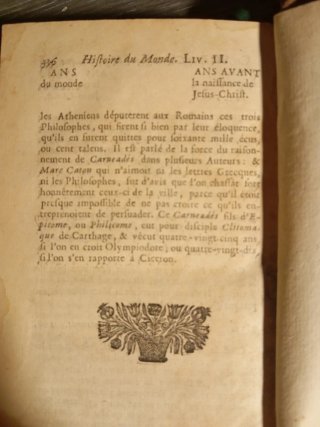 336 Histoire du Monde. LIV. II.
ANS ANS AVANT
du monde la naissance de
Jesus-Christ.
les Atheniens députerent aux Romains ces trois
Philosophes, qui firent si bien par leur éloquence,
qu'ils en furent quittes pour soixante mille écus,
ou cent talens. Il est parlé de la force du raison-
nement de Carneadés dans plusieurs Auteurs: &
Marc Caton qui n'aimoit ni les lettres Grecques,
ni les Philosophes, fut d'avis que l'on chassât fort
honnêtement ceux-ci de la ville, parce qu'il étoit
presque impossible de ne pas croire ce qu'ils en-
treprenoient de persuader. Ce Carneadés fils d'E-
picome, ou Philicome, eut pour disciple Clitoma-
que de Carthage, & vécut quatre-vingt-cinq ans,
si l'on en croit Olympiodore, ou quatre-vingt-dix,
si l'on s'en rapporte à Ciceron.